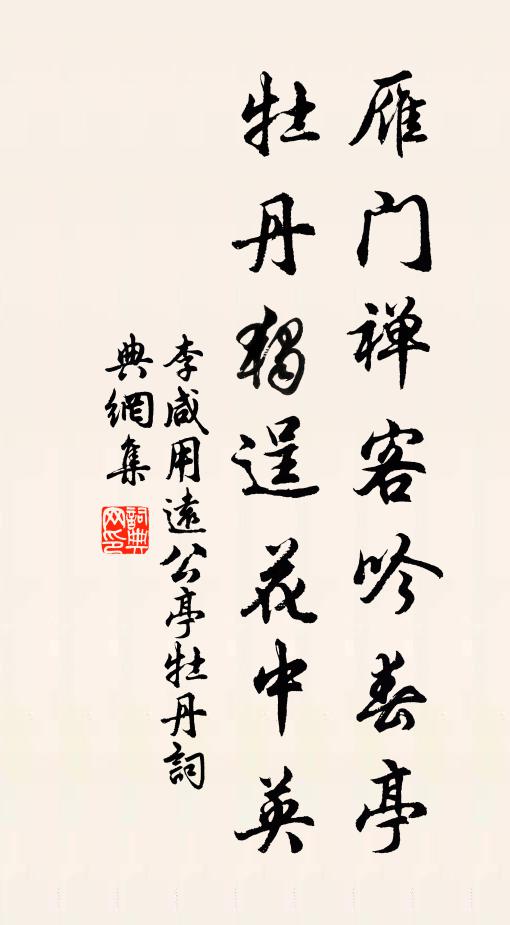 雁门禅客吟春亭
牡丹独逞花中英
李咸用遠公亭牡丹詞
典網集
詞典网印